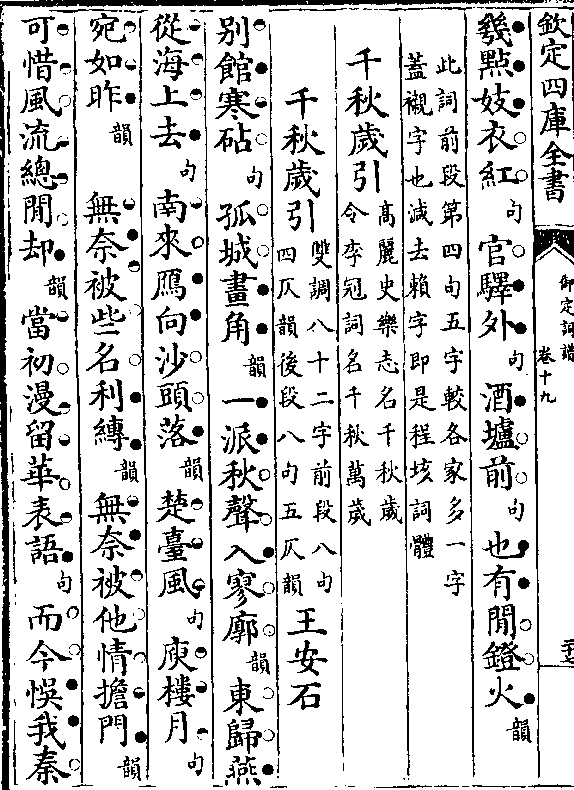 欽定四庫全書
御定詞譜
卷十九
幾點妓衣紅句 官驛外句 酒壚前句 也有閒鐙火韻
此詞前段第四句五字較各家多一字
蓋襯字也減去賴字即是程垓詞體
千秋歲引
高麗史樂志名千秋歲
令李冠詞名千秋萬歲
千秋歲引
雙調八十二字前段八句
四仄韻後段八句五仄韻
王安石
別館寒砧句 孤城畫角韻 一派秋聲入寥廓韻 東歸燕
從海上去句 南來鴈向沙頭落韻 楚臺風句 庾樓月句
宛如昨韻 無奈被些名利縛韻 無奈被他情擔門韻
可惜風流總閒却韻 當初漫留華表語句 而今悞我秦